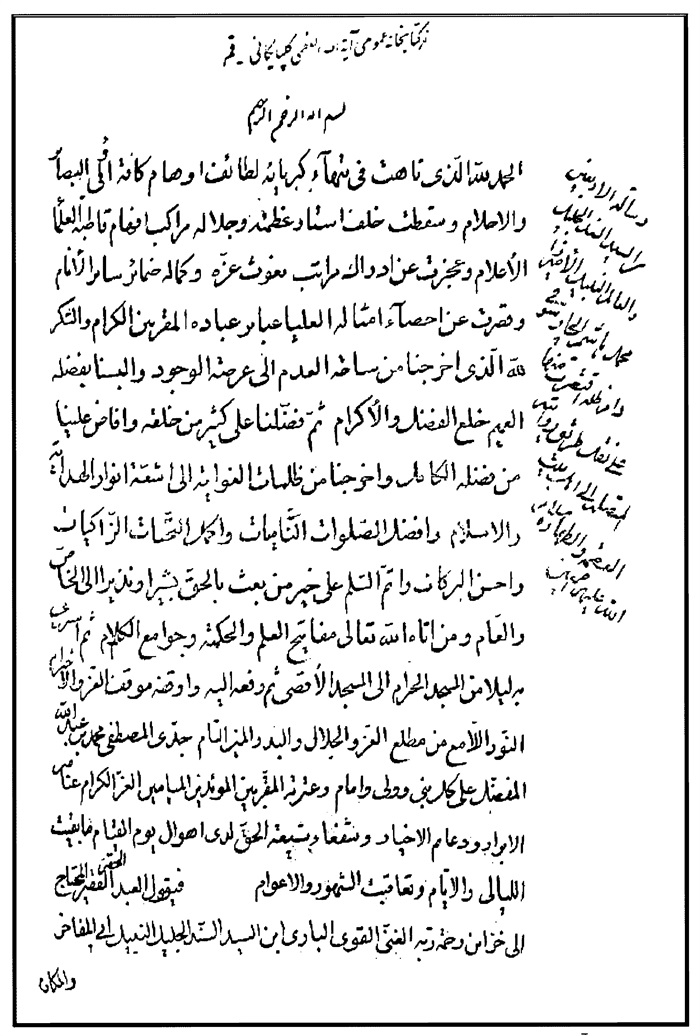 کتابخانه عمومی آیة الله العظمی گلپایگانی - قم
بسم الله الرحمن الرحیم
الحمد لله الّذی تاهت فی تیهآء کبریائه لطائف اوهام کافة اُولی البصائر
والاحلام وسقطت خلف استار عظمته وجلاله مراکب افهام قاطبة العلمآء
الأعلام وعجزت عن ادراك مراتب نعوت عزّه وکماله ضمائر سائر الأنام
وقصرت عن احصآء امثاله العلیا عبایر عباده المقربین الکرام والشکر
لله الّذی اخرجنا من ساحة العدم الی عرصة الوجود والبسنا بفضله
العمیم خلع الفضل والأکرام ثمّ فضّلنا علی کثیر من خلقه وافاض علینا
من فضله الکامل واخرجنا من ظلمات الغوایة الی اشعّة انوار الهدایة
والاسلام وافضل الصّلوات النّامیات واکمل التّحیّات الزّاکیات
واحسن البرکات واتمّ السّلم علی خیر من بعث بالحقّ بشیرا ونذیرا الی الخاصّ
والعام ومن اتاه الله تعالی مفاتیح العلم والحکمة وجوامع الکلام ثم اسری
به لیلا من المسجد الحرام الی المسجد الأقصی ثم رفعه الیه واوقفه موقف العز والاحترام
النّور اللّامع من مطلع العز والجلال والبدر المنیر التام جدّی المصطفی محمد بن عبد الله
المفضّل علی کل نبی وولی وامام وعترته المقرّبین المیامین الغرّ الکرام عناصر
الابرار ودعایم الاخیار وشفعاء شیعة الحقّ لدی اهوال یوم القیام ما بقیت
اللیالی والایّام وتعاقبت الشهور والاعوام فیقول العبد الحقیر الفقیر المحتاج
الی خزاین رحمة ربّه الغنیّ القوی الباری ابن السید السّند الجلیل النبیل ابی المفاخر
والمکارم
رسالة الاربعین
من السید السند الجلیل